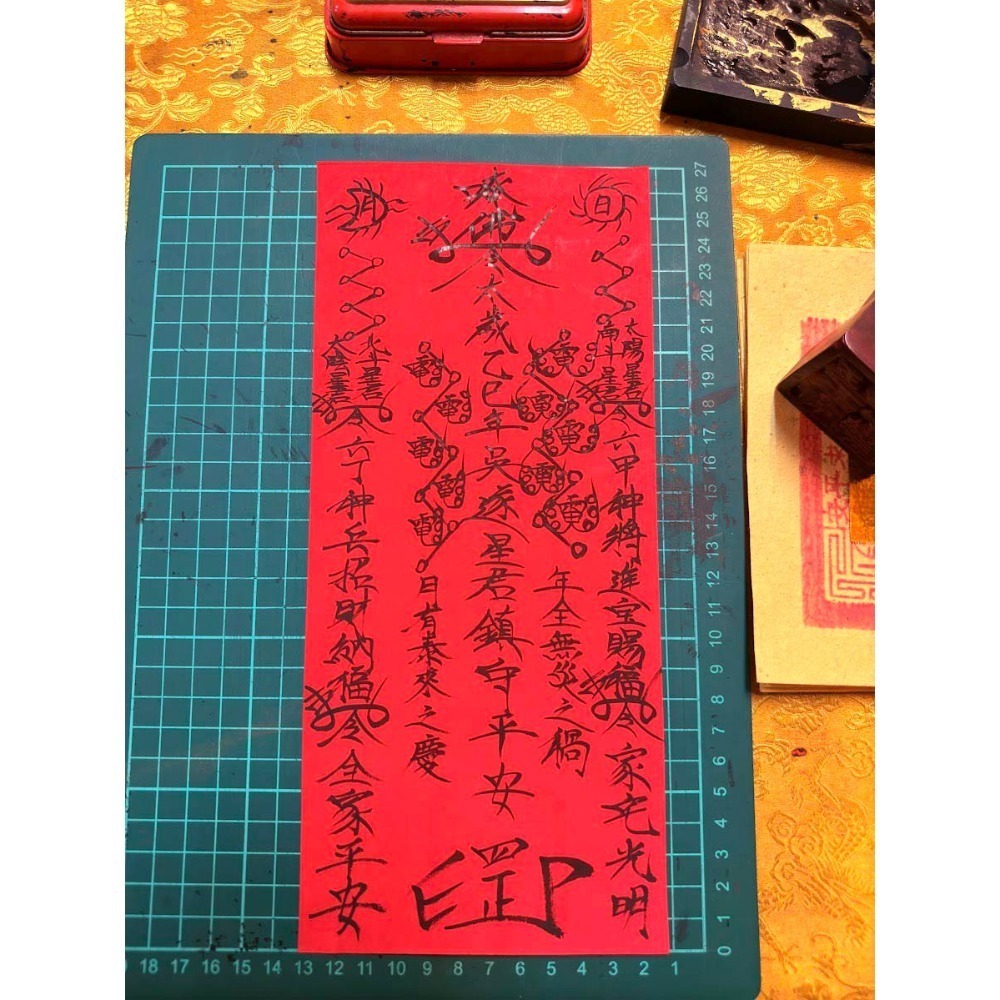 日
太陽星君
南斗星君
令六甲神將進宝賜福令家宅光明
電電電電電
年全無災之禍
奉佛令太歲乙巳年吳遂星君鎮守平安
罡印
電電電電電
日有泰來之慶
月
北斗星君
太陰星君
令六丁神兵招財納福令全家平安
27
26
25
24
23
22
21
20
19
18
17
16
15
14
13
12
11
10
9
8
7
6
5
4
3
2
1
0
18 17 16 15 14 13 12 11 10 9 8 7 6 5 4 3 2 1